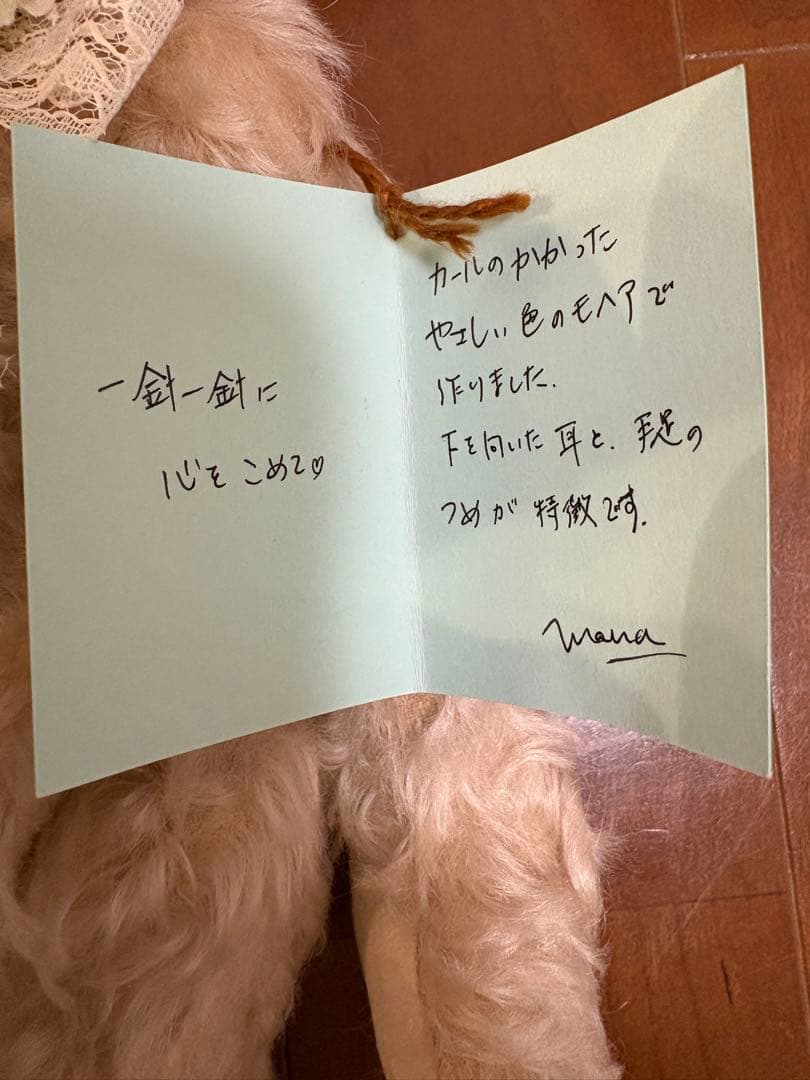 一針一針に
心をこめて♡
カールのかかった
やさしい色のモヘアで
作りました.
下を向いた耳と、手足の
つめが特徴です.
mana